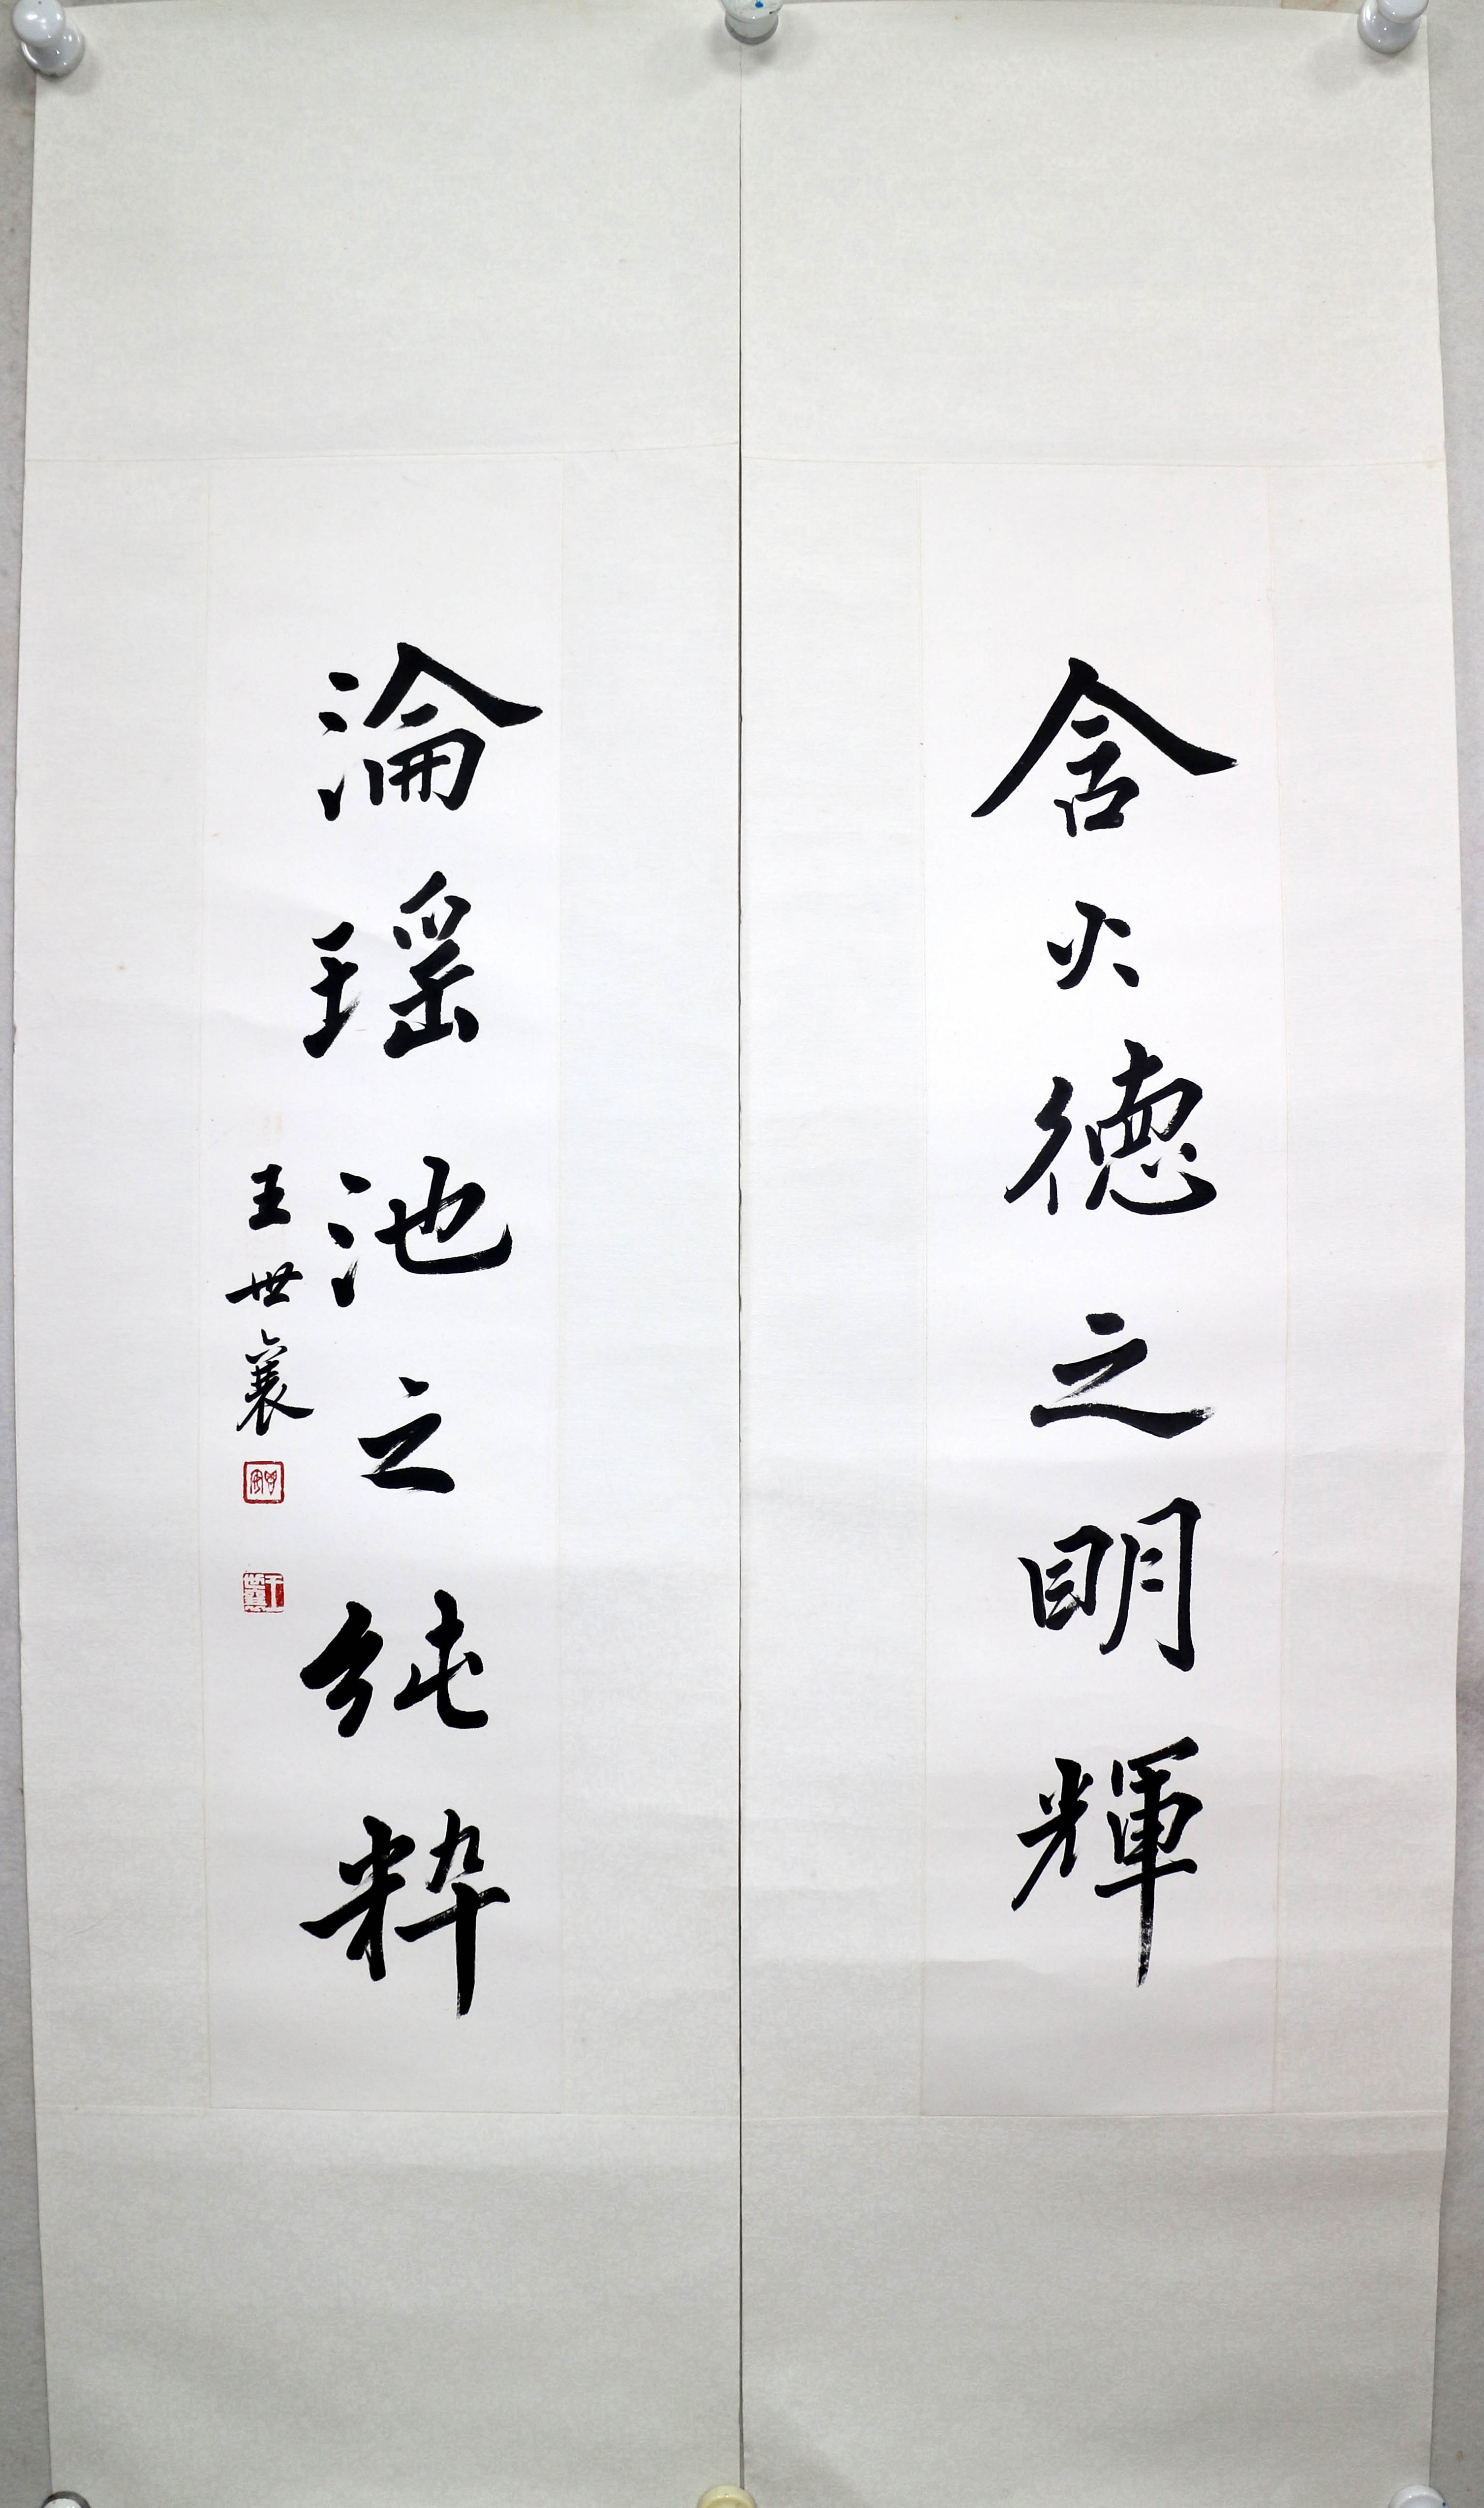 含火德之明輝
淪瑶池之純粹
王世襄
王世襄